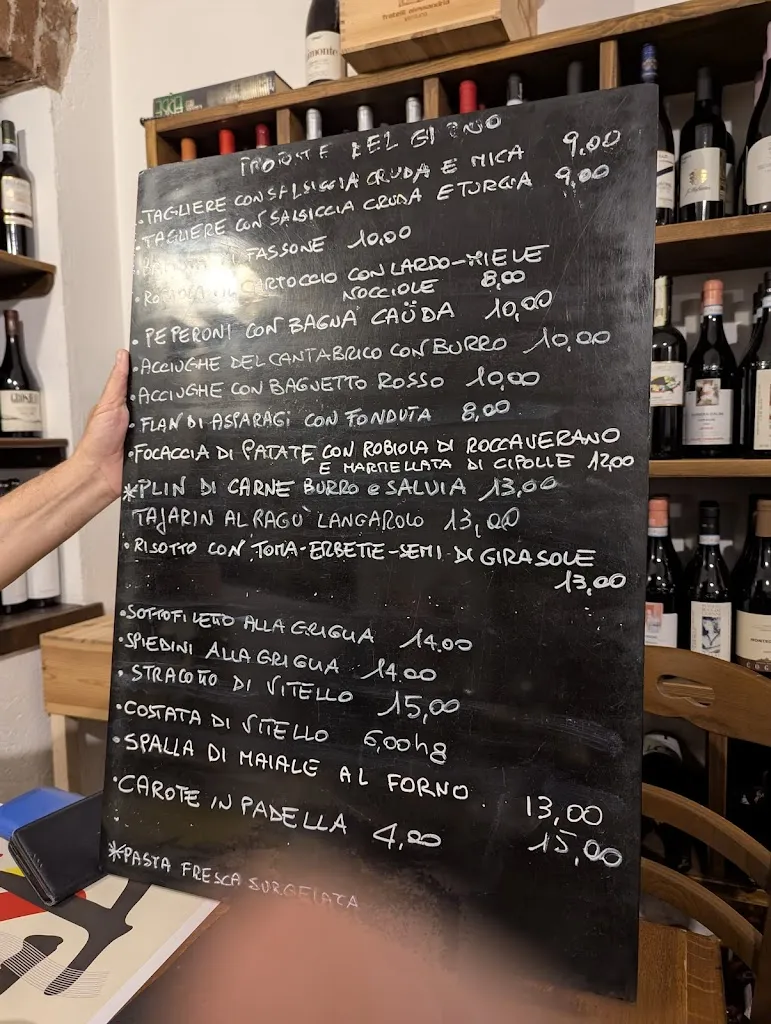 DEL GIORNO
• TAGLIERE CON SALSICCIA CRUDA E MICA 9,00
• TAGLIERE CON SALSICCIA CRUDA E TURGIA 9,00
FASSONE 10,00
• CARTOCCIO CON LARDO-MIELE
NOCCIOLE 8,00
• PEPERONI CON BAGNA CAÜDA 10,00
• ACCIUGHE DEL CANTABRICO CON BURRO 10,00
• ACCIUGHE CON BAGNETTO ROSSO 10,00
• FLAN DI ASPARAGI CON FONDUTA 8,00
• FOCACCIA DI PATATE CON ROBIOLA DI ROCCAVERANO
E MARTELLATA DI CIPOLLE 12,00
*PLIN DI CARNE BURRO e SALVIA 13,00
TAJARIN AL RAGU' LANGAROLO 13,00
• RISOTTO CON TOMA-ERBETTE-SEMI DI GIRASOLE
13,00
• SOTTOFILETTO ALLA GRIGLIA 14.00
• SPIEDINI ALLA GRIGLIA 14.00
• STRACOTTO DI VITELLO 15,00
• COSTATA DI VITELLO 6,00hg
• SPALLA DI MAIALE AL FORNO. 13,00
• CAROTE IN PADELLA 4,00 15,00
*PASTA FRESCA SURGELATA